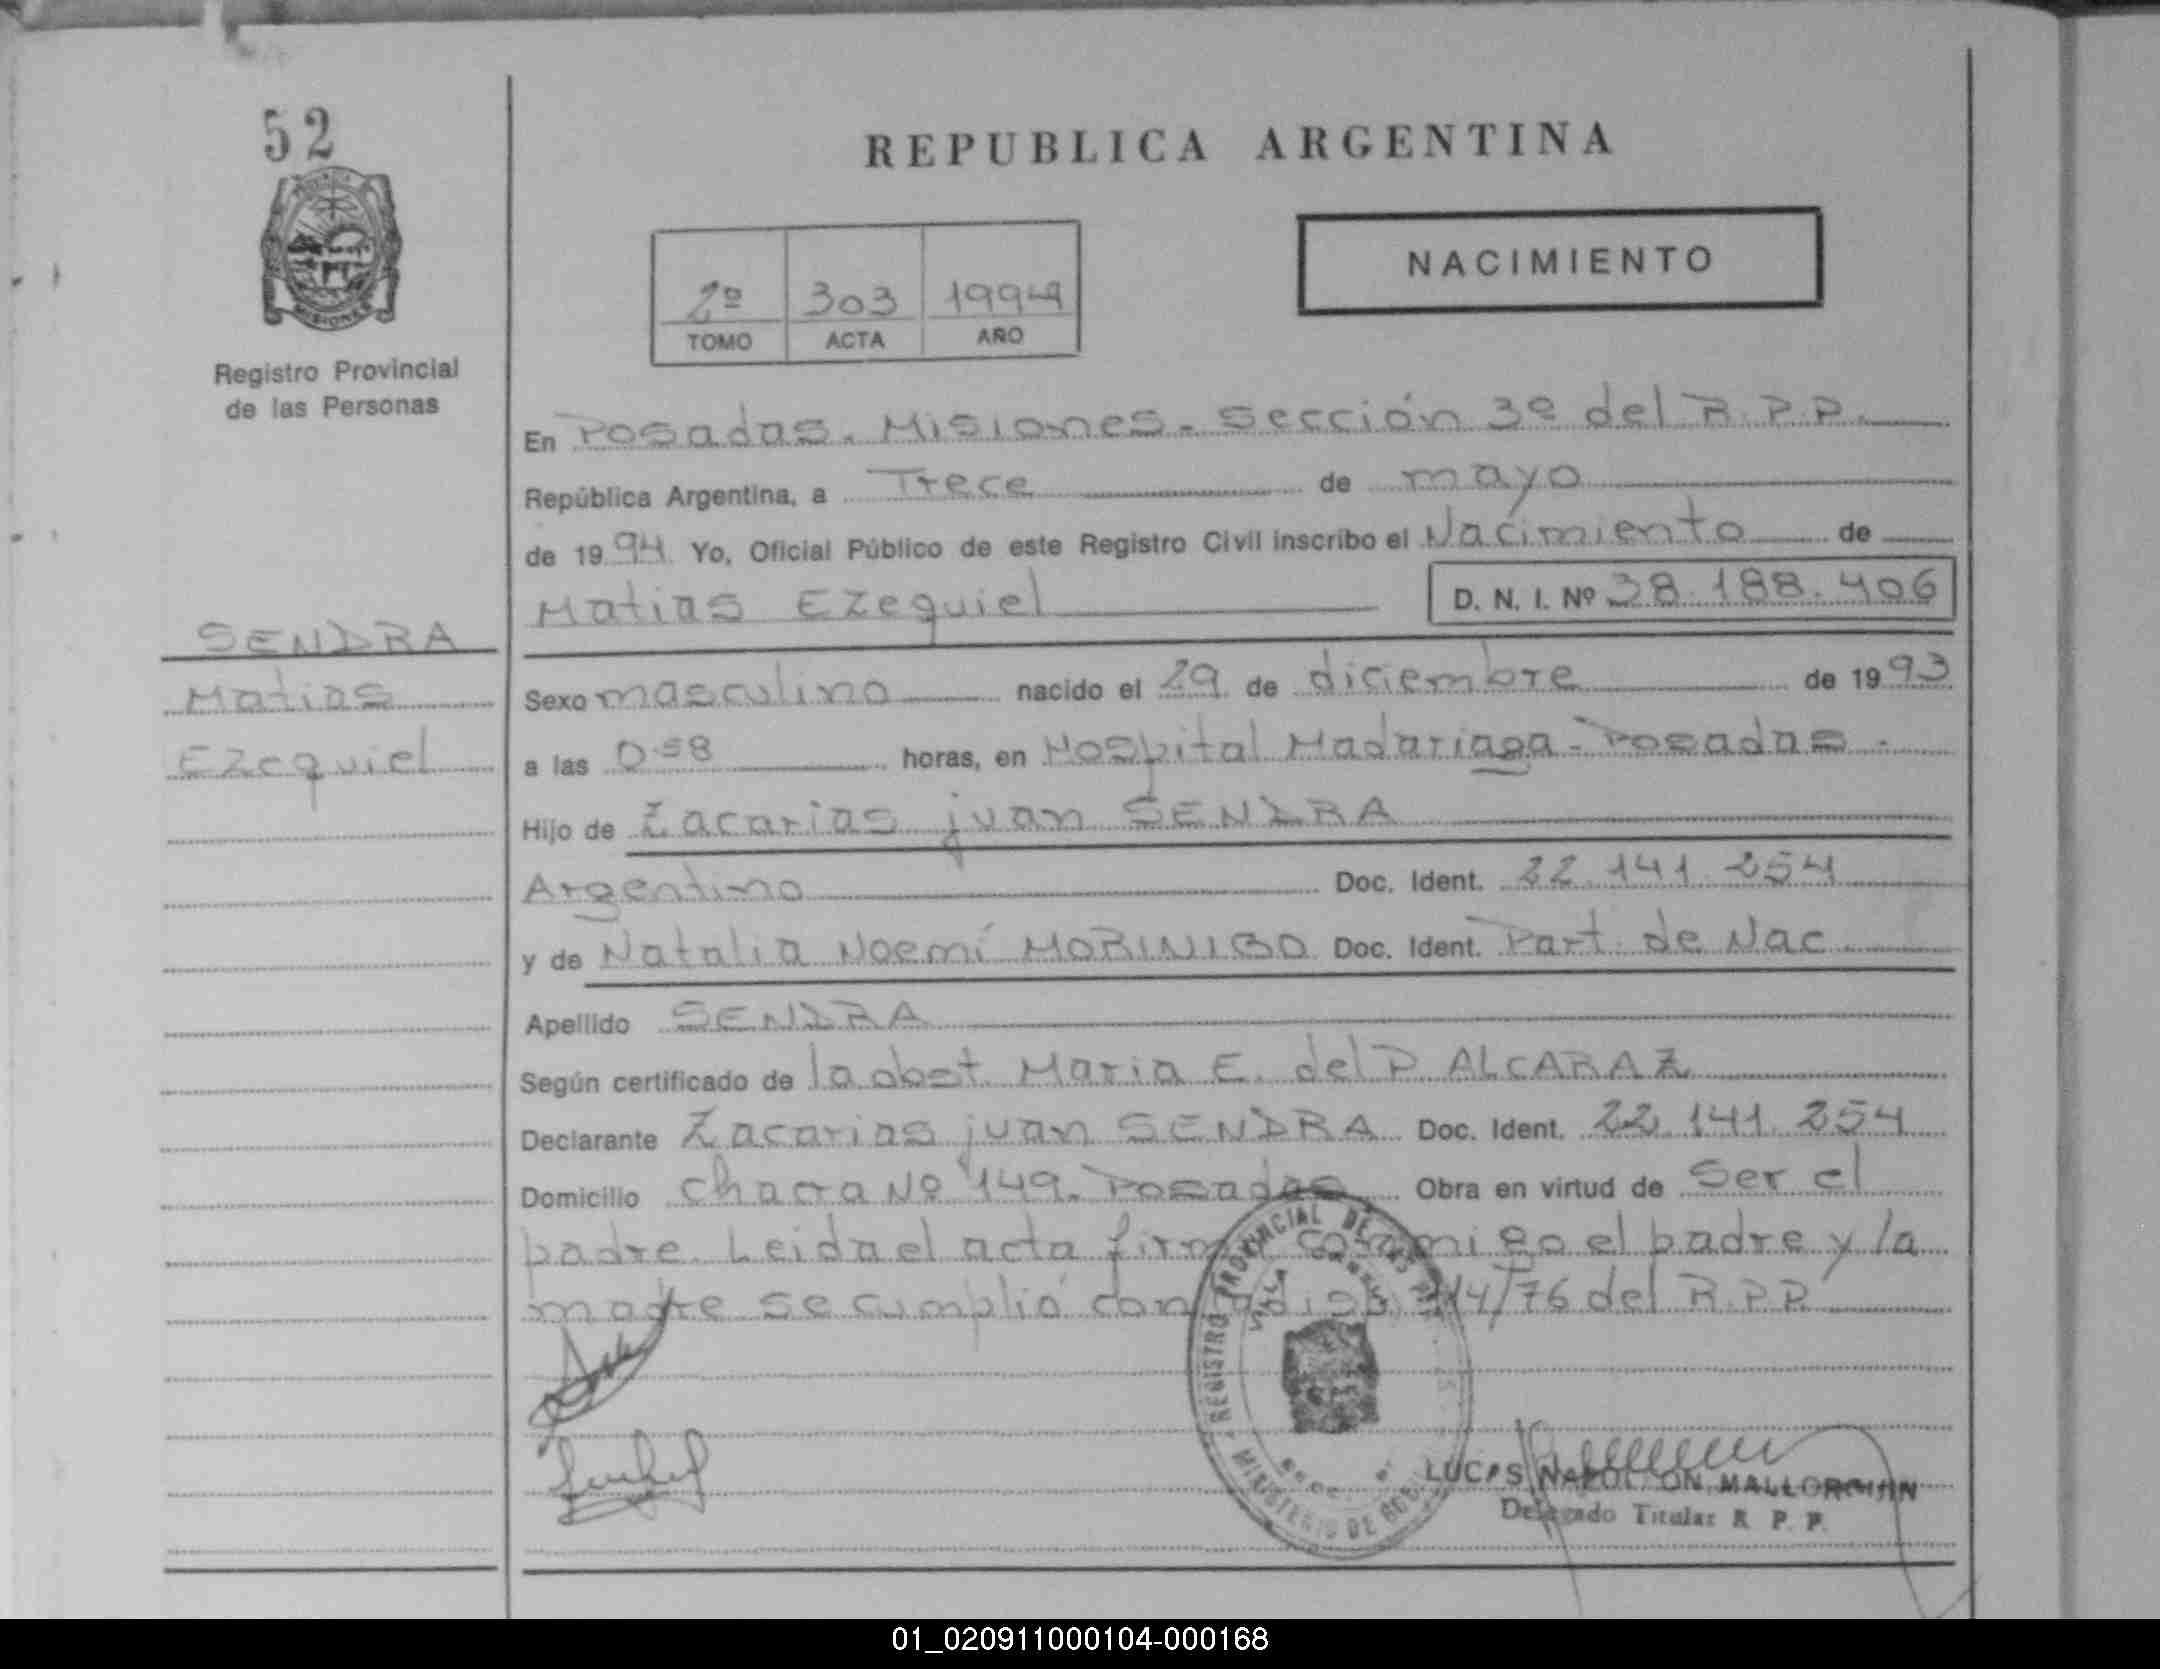 52
MISIONES
Registro Provincial
de las Personas
SENDRA
Matias
Ezequiel
REPUBLICA ARGENTINA
NACIMIENTO
2º 303 1994
TOMO ACTA AÑO
En Posadas. Misiones. Sección 3º del R.P.P.
República Argentina, a Trece de mayo
de 1994 Yo, Oficial Público de este Registro Civil inscribo el Nacimiento de
Matias Ezequiel D. N. I. Nº 38.188.406
Sexo masculino nacido el 29 de diciembre de 1993
a las 0.58 horas, en Hospital Madariaga - Posadas.
Hijo de Zacarias juan SENDRA
Argentino Doc. Ident. 22.141.254
y de Natalia Noemí MORINIGO Doc. Ident. Part. de Nac.
Apellido SENDRA
Según certificado de la obst. Maria E. del P. ALCARAZ
Declarante Zacarias juan SENDRA Doc. Ident. 22.141.254
Domicilio chacra Nº 149. Posadas Obra en virtud de Ser el
padre. Leida el acta firma conmigo el padre y la
madre se cumplió con 14/76 del R.P.P.
REGISTRO PROVINCIAL DE LAS
VILLA
MINISTERIO DE
LUCAS NAPOLEON MALLORQUIN
Delegado Titular R. P. P.
01_020911000104-000168